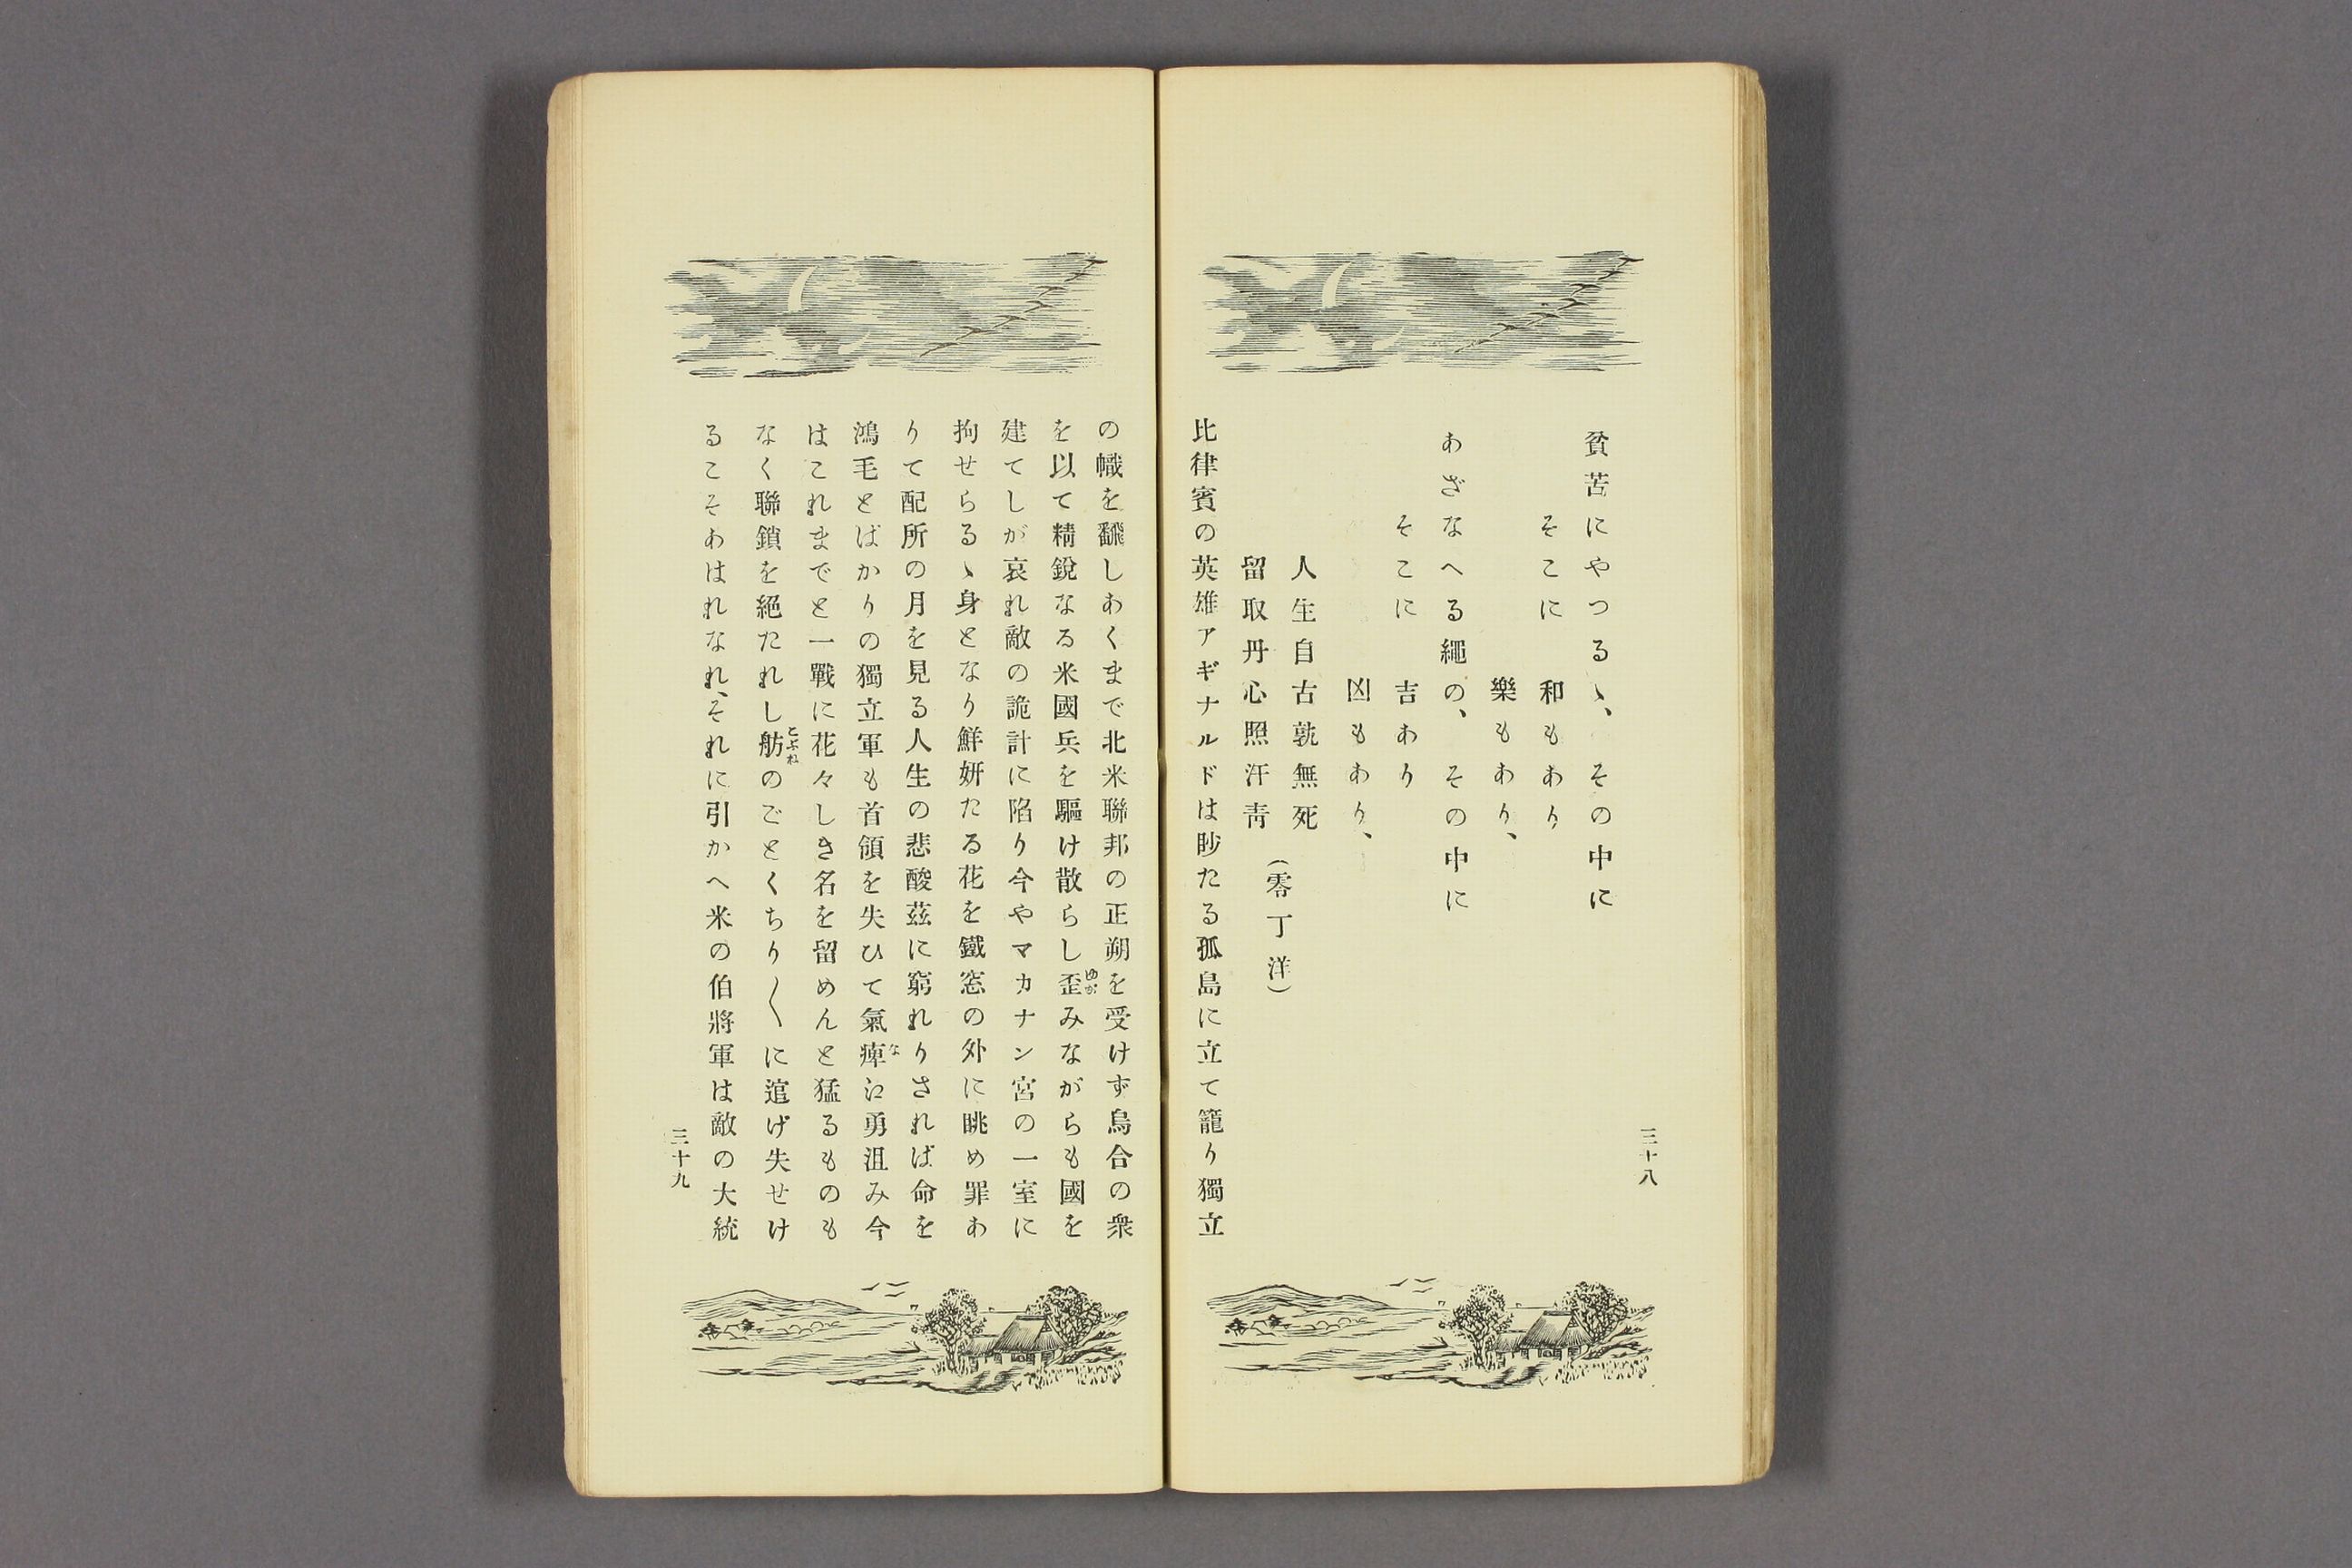 貧苦にやつるゝ、その中に
そこに和もあり
樂もあり、
あざなへる繩の、その中に
そこに吉あり
凶もあり、
人生自古孰無死
留取丹心照汗靑
(零丁洋)
比律賓の英雄アギナルドは眇たる孤島に立て籠り獨立
三十八
の幟を飜しあくまで北米聯邦の正朔を受けず烏合の衆
を以て精銳なる米國兵を驅け散らし歪みながらも國を
ゆが
建てしが哀れ敵の詭計に陷り今やマカナン宮の一室に
拘せらるゝ身となり鮮姸たる花を鐵窓の外に眺め罪あ
りて配所の月を見る人生の悲酸茲に窮れりされば命を
鴻毛とばかりの獨立軍も首領を失ひて氣瘁に勇沮み今
な
はこれまでと一戰に花々しき名を留めんと猛るものも
なく聯鎖を絕たれし舫のごとくちり〱に逭げ失せけ
ともぶね
るこそあはれなれ、それに引かへ米の伯將軍は敵の大統
三十九